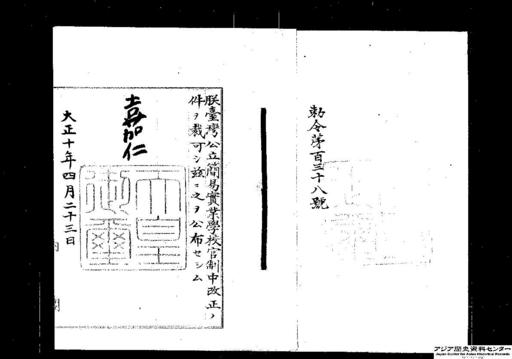 勅令第百三十八號
朕臺灣公立簡易實業學校官制中改正ノ
件ヲ裁可シ茲ニ之ヲ公布セシム
嘉仁
天皇御璽
大正十年四月二十三日
内閣
アジア歴史資料センター
Japan Center for Asian Historical Records